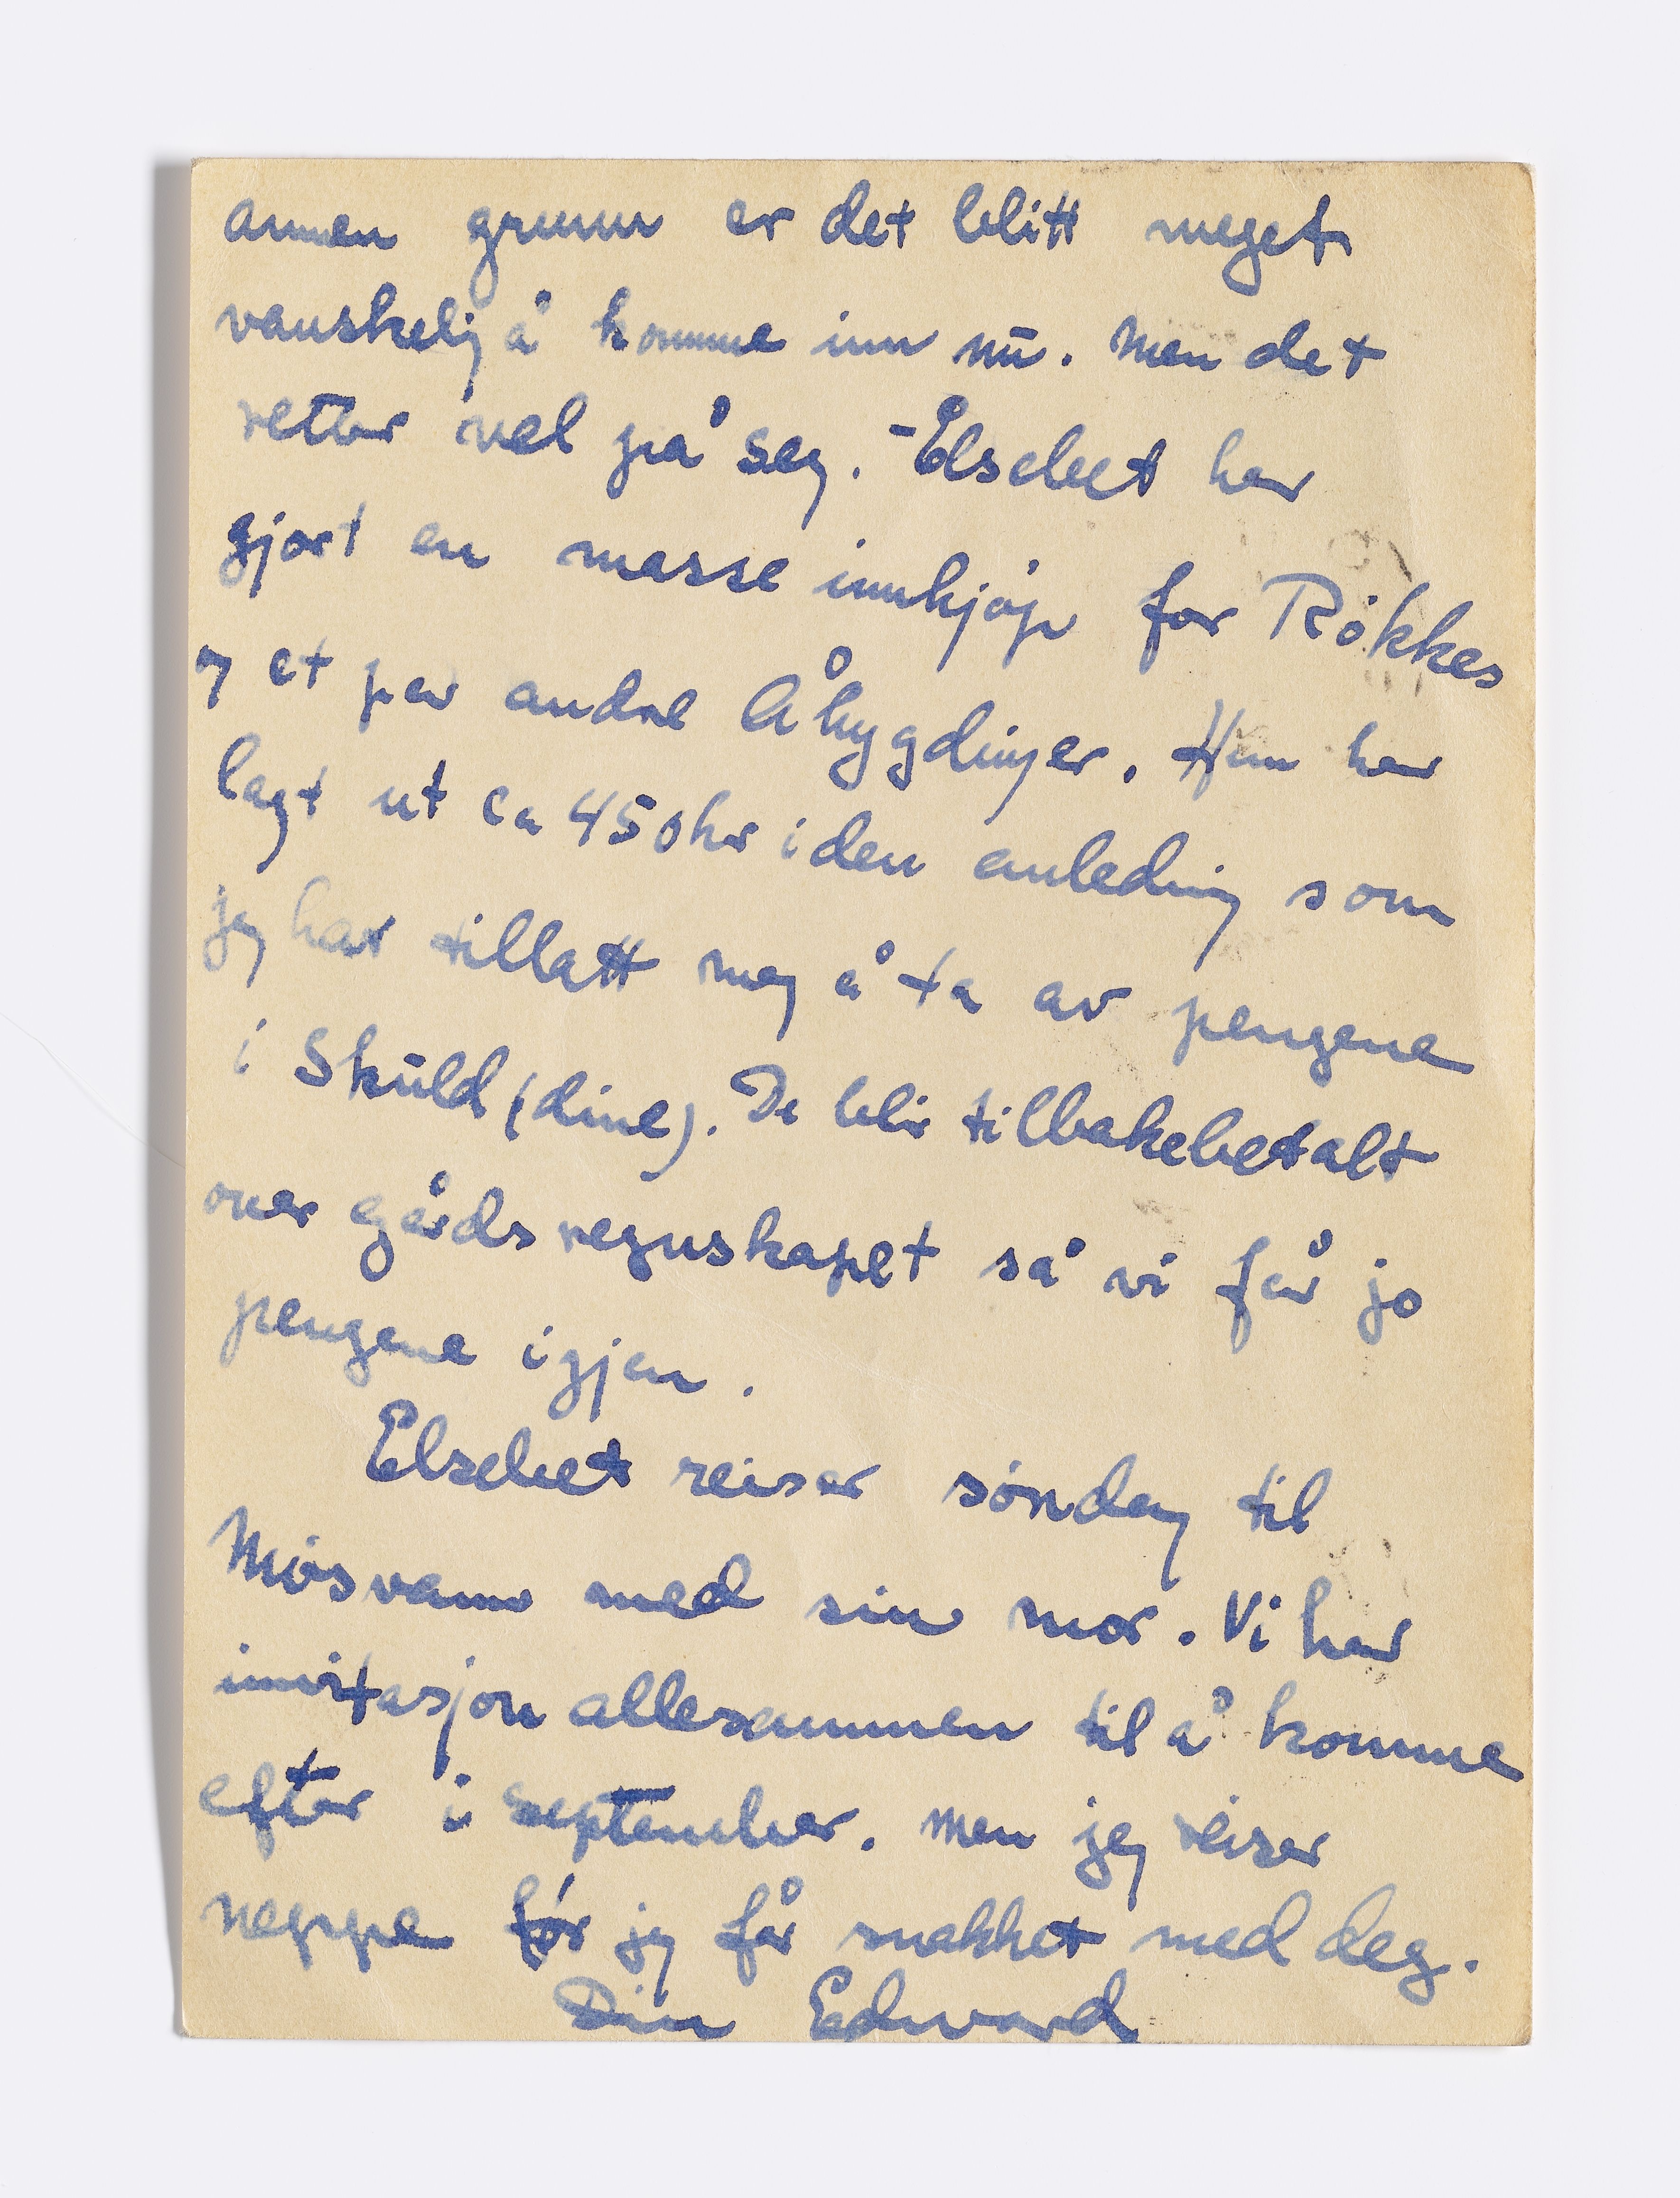 annen grunn er det blitt meget
vanskelig å komme inn nū. Men det
retter vel på seg. - Elsebet har
gjort en masse innkjøp for Rökkes
og et par andre Åbygdinger. Hun har
lagt ut ca 450 kr i den anledning som
jeg har tillatt meg å ta av pengene
i Skūld (dine). De blir tilbakebetalt
over gårdsregnskapet så vi får jo
pengene igjen.
Elsebet reiser söndag til
Mösvann med sin mor. Vi har
invitasjon allesammen til å komme
efter i september. Men jeg reiser
neppe för jeg får snakket med deg.
Din Edvard